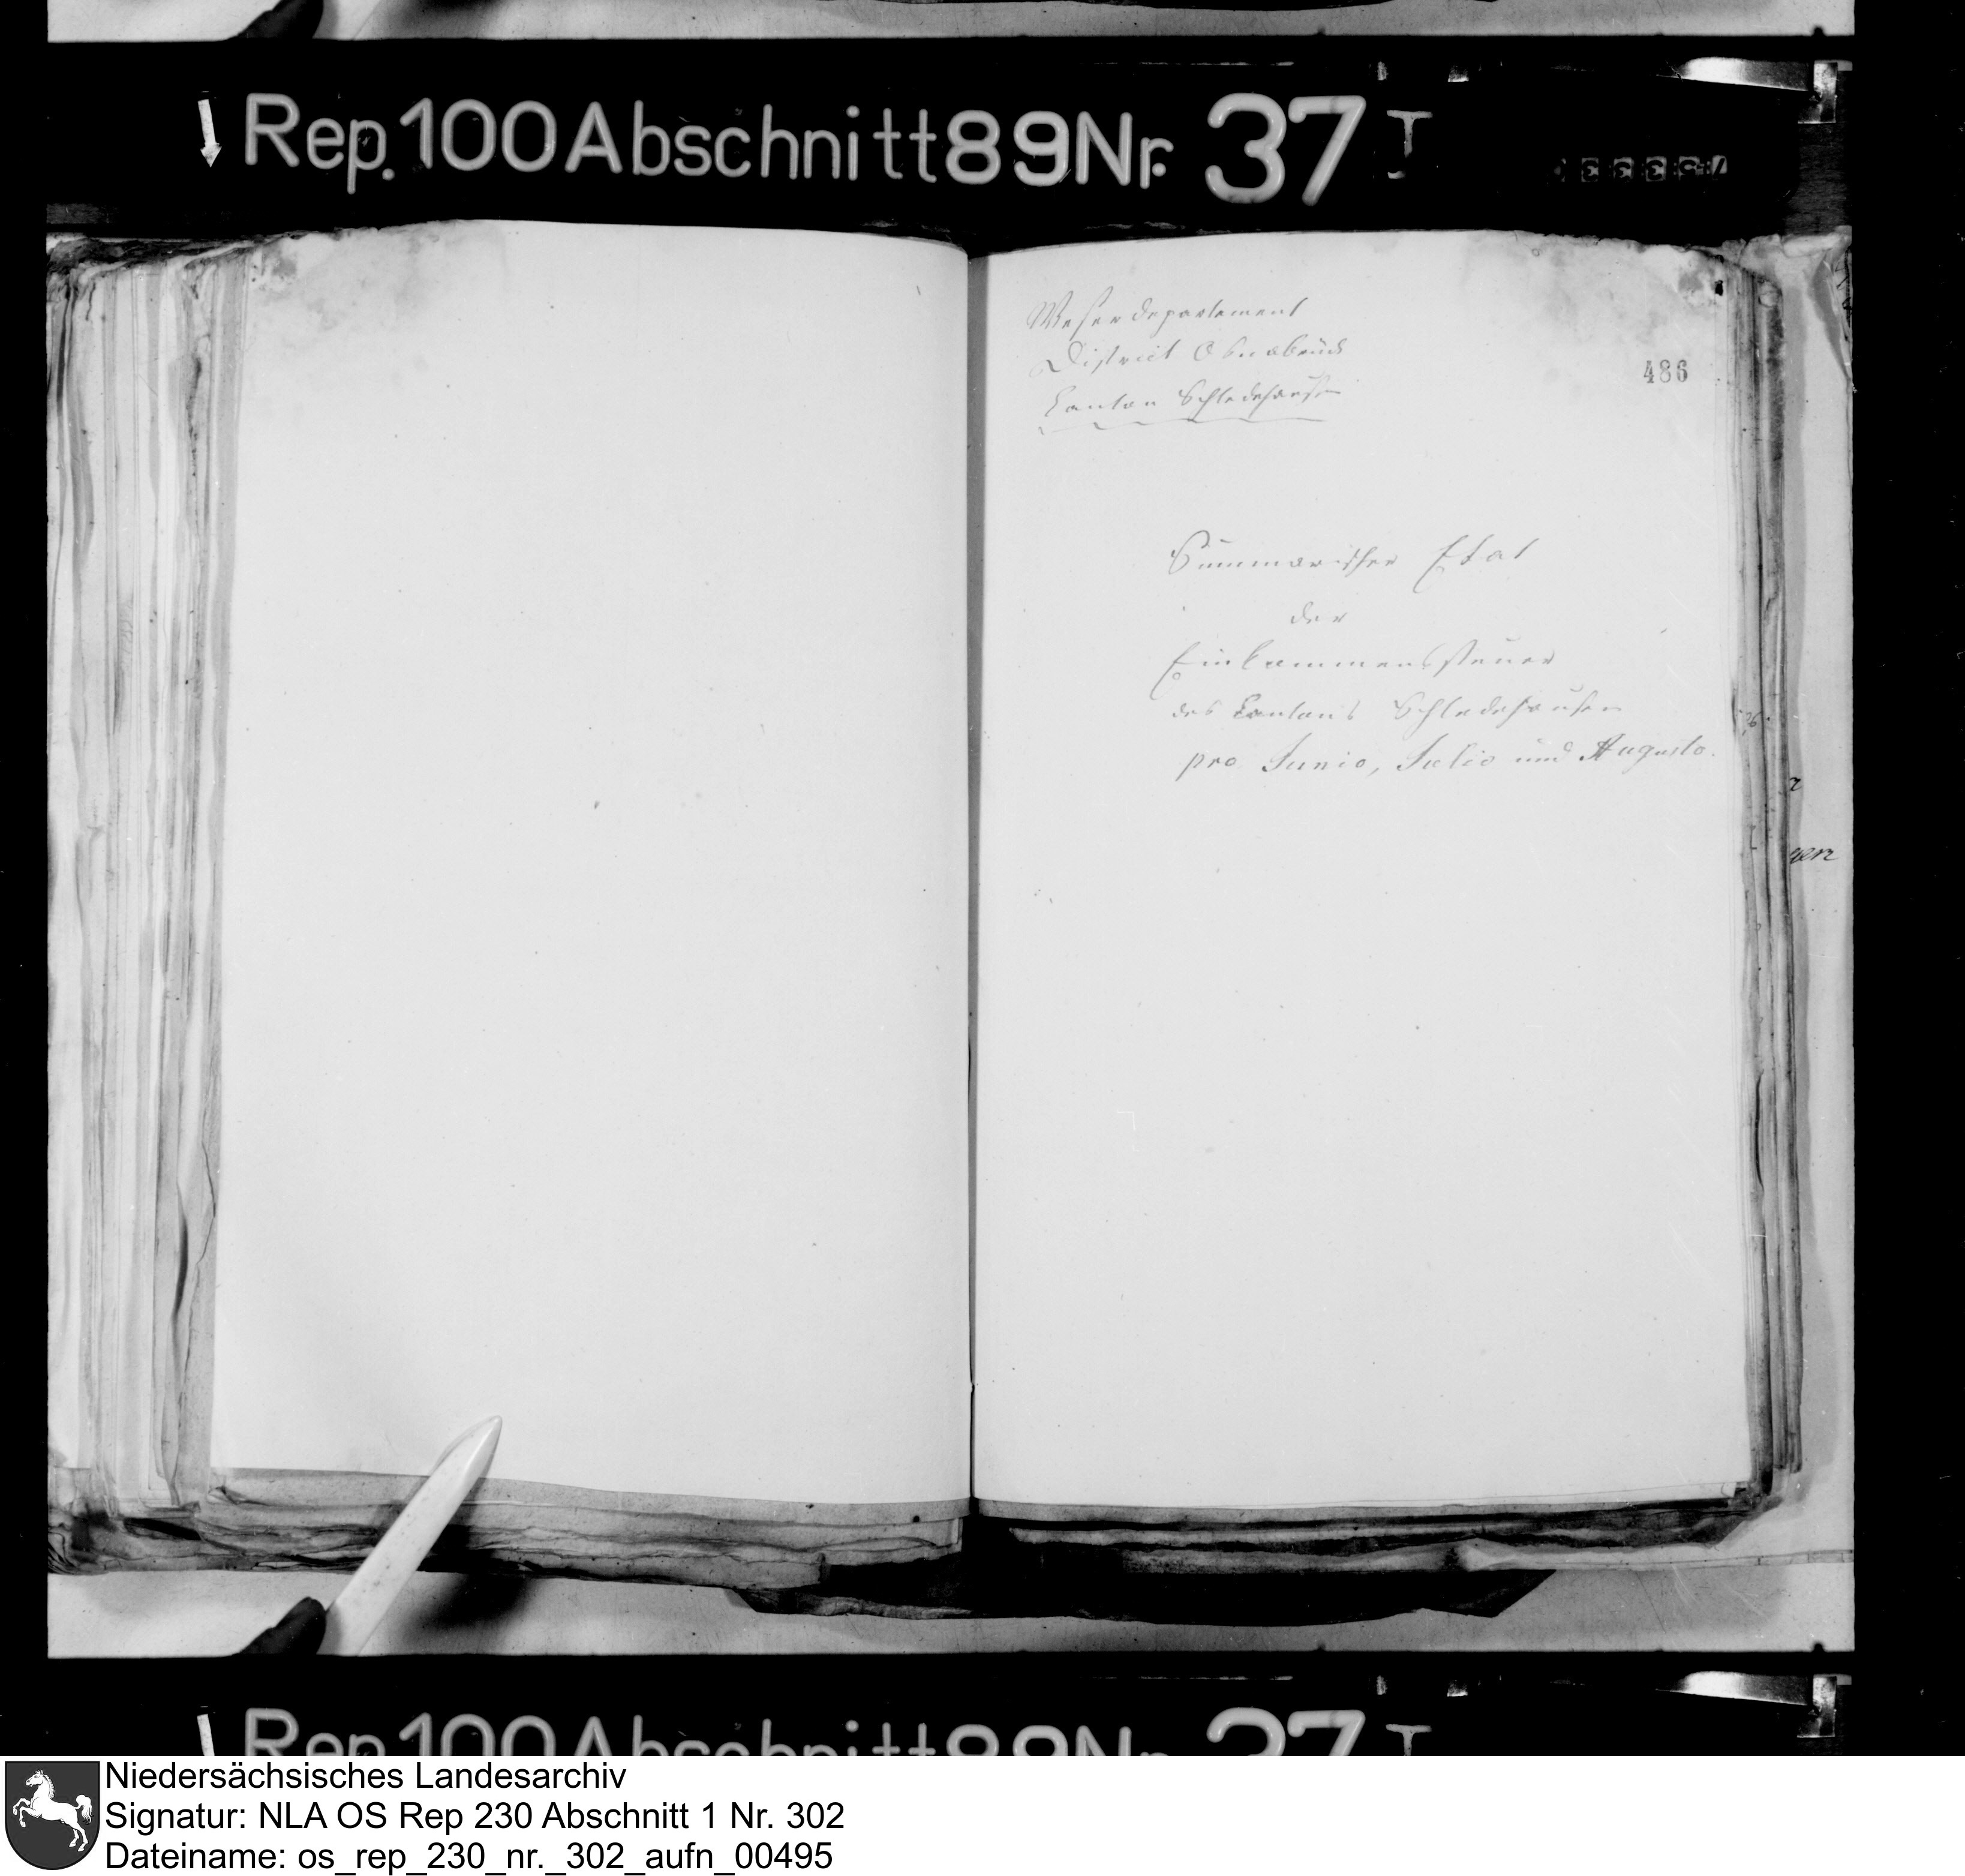 Rep. 100 Abschnitt 89 Nr. 37 I
Weserdepartement
District Osnabrück
Canton Schledehausen
486
Summarischer Etat
der
Einkommenssteuer
des Cantons Schledehausen
pro Junio, Julio und Augusto.
Rep. 100 Abschnitt 89 Nr. 37 I
Niedersächsisches Landesarchiv
Signatur: NLA OS Rep 230 Abschnitt 1 Nr. 302
Dateiname: os_rep_230_nr._302_aufn_00495